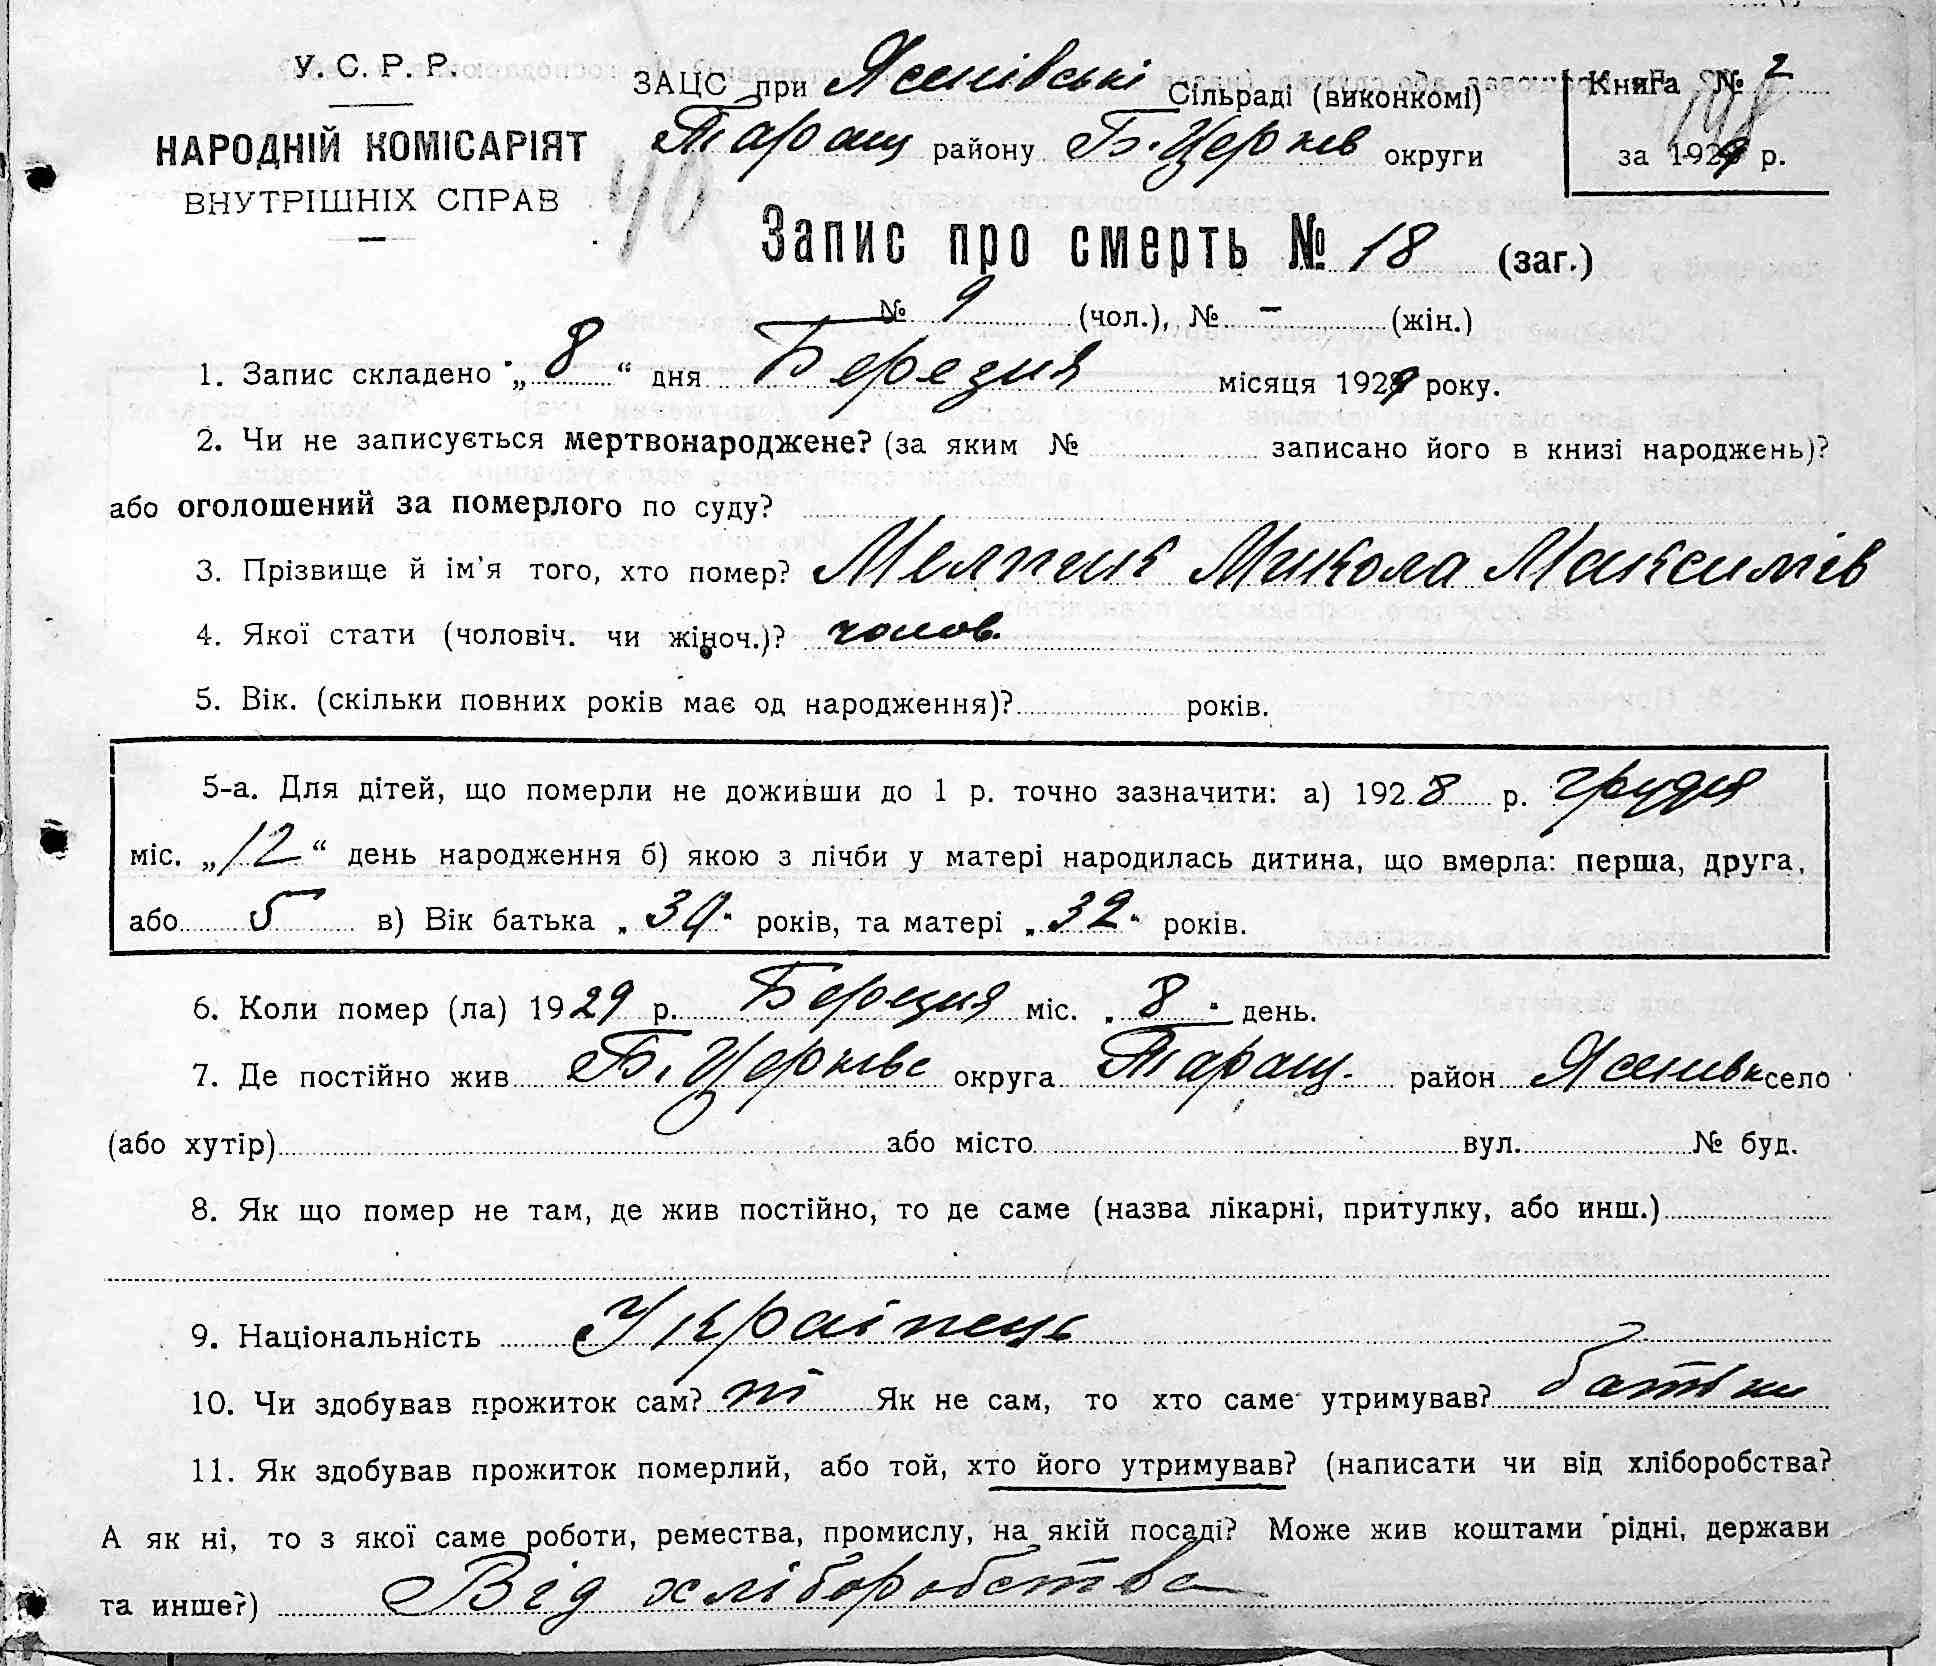 У. С. Р. Р.
НАРОДНІЙ КОМІСАРІЯТ
ВНУТРІШНІХ СПРАВ
40
ЗАЦС при Ясенівські Сільраді (виконкомі)
Таращ району Б. Церків округи
Книга № 2
198
за 1929 р.
Запис про смерть № 18 (заг.)
№ 9 (чол.), № - (жін.)
1. Запис складено „ 8 “ дня Березня місяця 1929 року.
2. Чи не записується мертвонароджене? (за яким № записано його в книзі народжень)?
або оголошений за померлого по суду?
3. Прізвище й ім'я того, хто помер? Мелник Микола Максимів
4. Якої стати (чоловіч. чи жіноч.)? чолов.
5. Вік. (скільки повних років має од народження)? років.
5-а. Для дітей, що померли не доживши до 1 р. точно зазначити: а) 192 8 р. грудня
міс. „ 12 “ день народження б) якою з лічби у матері народилась дитина, що вмерла: перша, друга,
або 5 в) Вік батька „ 39 “ років, та матері „ 32 “ років.
6. Коли помер (ла) 1929 р. Березня міс. „ 8 “ день.
7. Де постійно жив Б. Церківс округа Таращ. район Ясенивк село
(або хутір) або місто вул. № буд.
8. Як що помер не там, де жив постійно, то де саме (назва лікарні, притулку, або инш.)
9. Національність Українець
10. Чи здобував прожиток сам? ні Як не сам, то хто саме утримував? батьки
11. Як здобував прожиток померлий, або той, хто його утримував? (написати чи від хліборобства?
А як ні, то з якої саме роботи, ремества, промислу, на якій посаді? Може жив коштами рідні, держави
та инше?) Від хліборобства